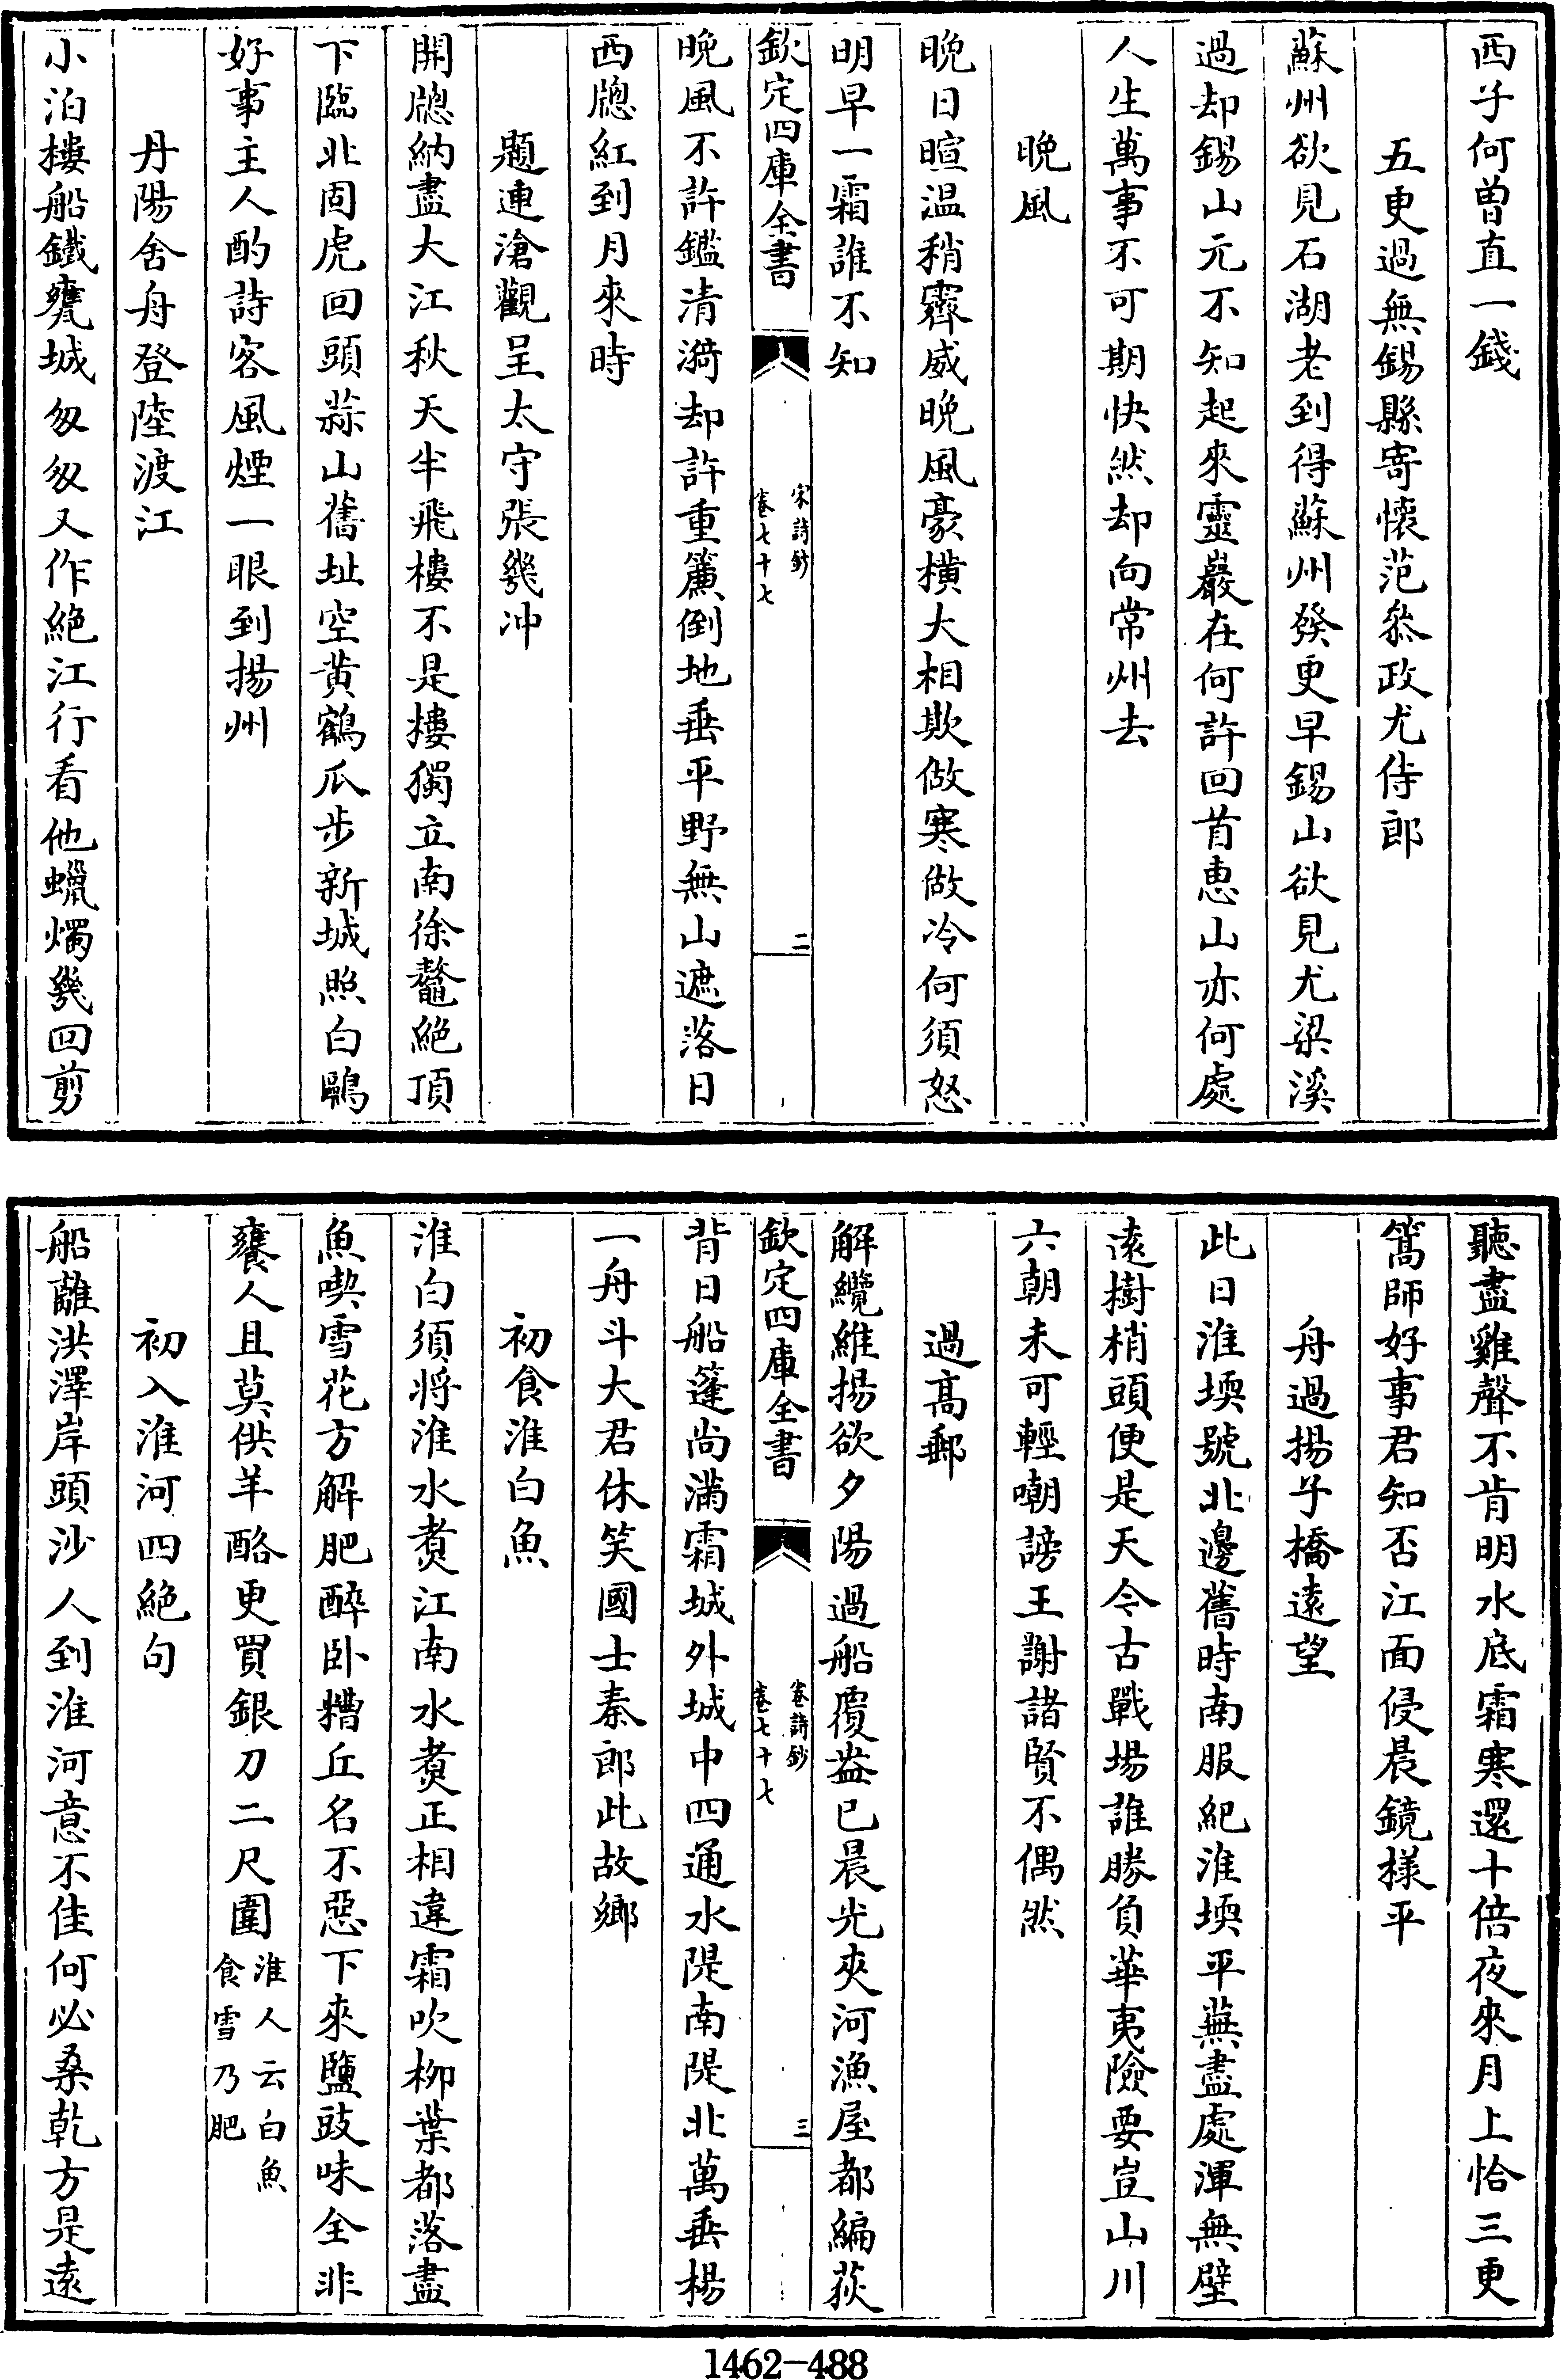 西子何曾直一錢
五更過無錫縣寄懷范叅政尤侍郎
蘇州欲見石湖老到得蘇州發更早錫山欲見尤梁溪
過却錫山元不知起來靈巖在何許回首恵山亦何處
人生萬事不可期快然却向常州去
晩風
晩日暄温稍霽威晩風豪橫大相欺做寒做冷何須怒
明早一霜誰不知
欽定四庫全書
宋詩鈔
卷七十七
二
晩風不許鑑清漪却許重簾倒地垂平野無山遮落日
西牕紅到月來時
題連滄觀呈太守張幾冲
開牕納盡大江秋天半飛樓不是樓獨立南徐鼇絶頂
下臨北固虎回頭蒜山舊址空黄鶴瓜步新城照白鷗
好事主人酌詩客風煙一眼到揚州
丹陽舍舟登陸渡江
小泊樓船鐵甕城匆匆又作絶江行看他蠟燭幾回剪
聽盡雞聲不肯明水底霜寒還十倍夜來月上恰三更
篙師好事君知否江面侵晨鏡様平
舟過揚子橋遠望
此日淮堧號北邊舊時南服紀淮堧平蕪盡處渾無壁
遠樹梢頭便是天今古戰場誰勝負華夷險要豈山川
六朝未可輕嘲謗王謝諸賢不偶然
過高郵
解纜維揚欲夕陽過船覆盎已晨光夾河漁屋都編荻
欽定四庫全書
卷詩鈔
卷七十七
三
背日船篷尚滿霜城外城中四通水隄南隄北萬垂楊
一舟斗大君休笑國士秦郎此故鄉
初食淮白魚
淮白須將淮水煑江南水煑正相違霜吹柳葉都落盡
魚喫雪花方解肥醉卧糟丘名不惡下來鹽豉味全非
饔人且莫供羊酪更買銀刀二尺圍淮人云白魚食雪乃肥
初入淮河四絶句
船離洪澤岸頭沙人到淮河意不佳何必桑乾方是遠
1462-488